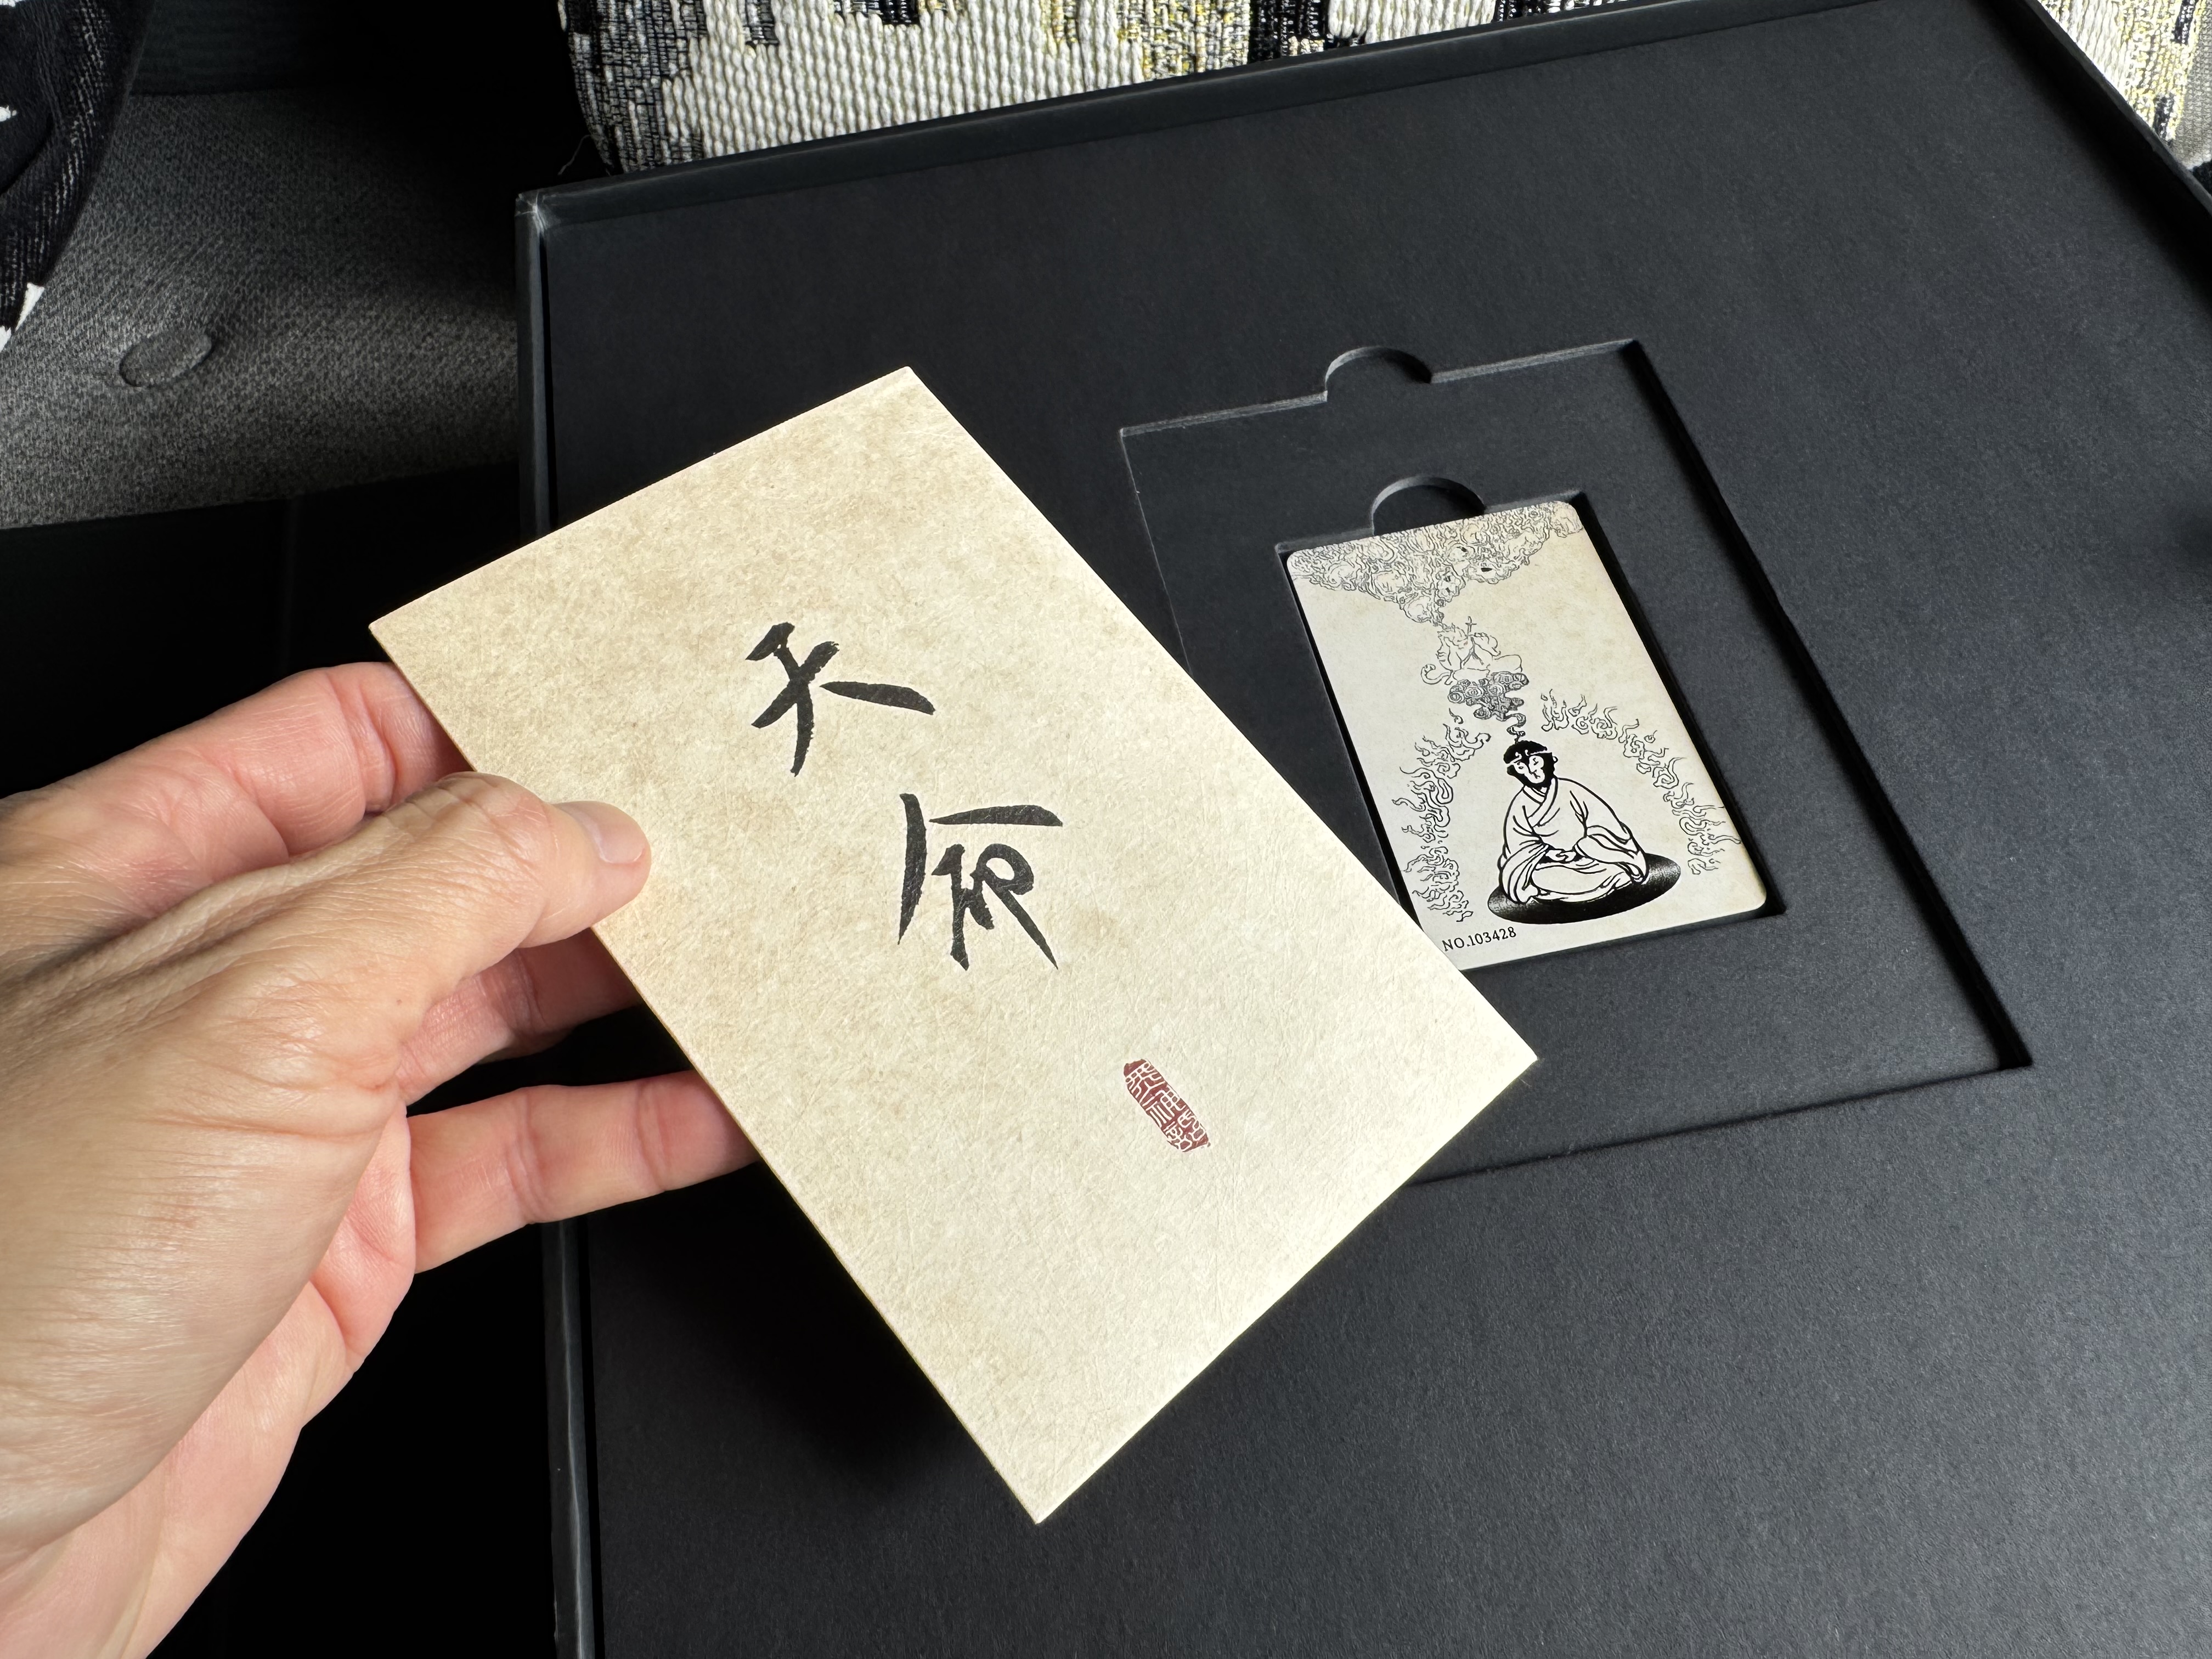 天命
NO.103428